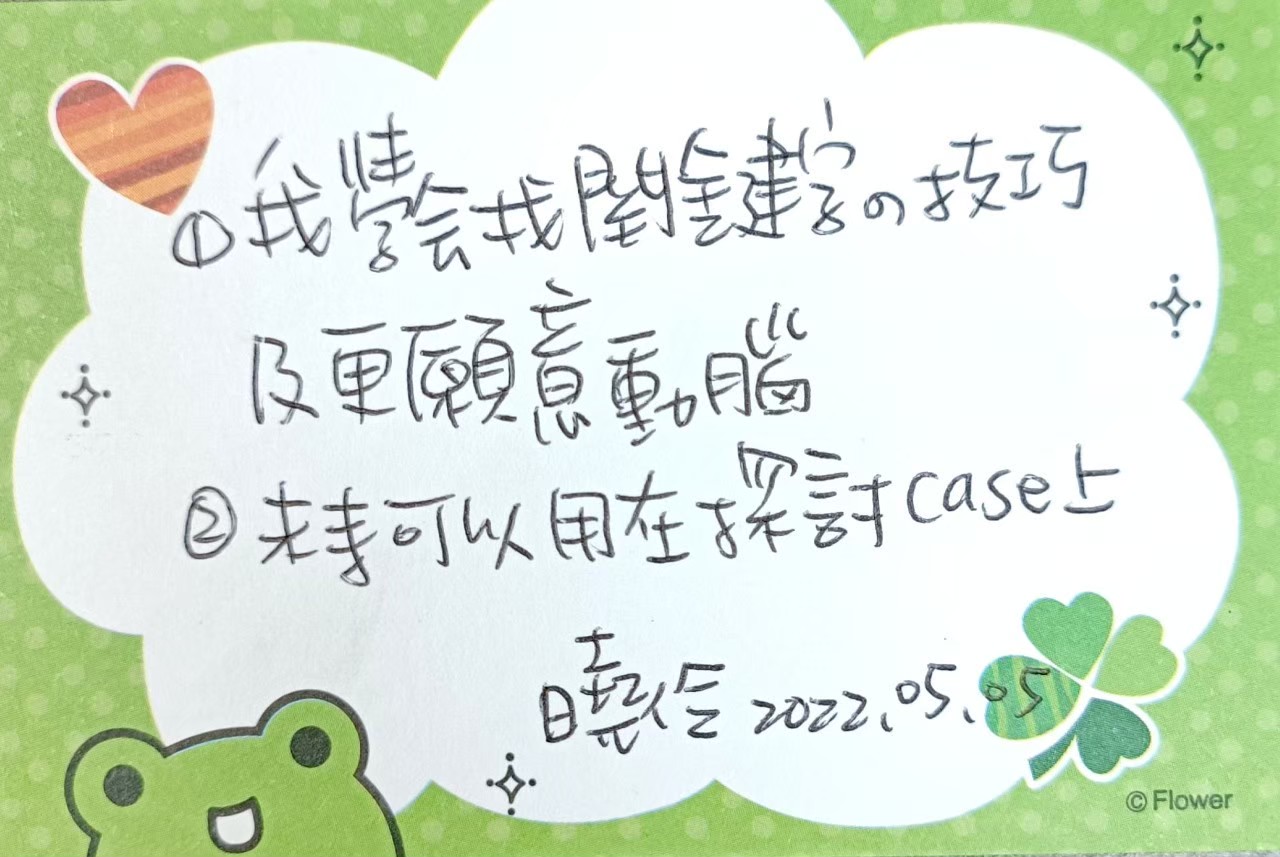 ①我學会找関鍵字の技巧
及更願意動腦
②未来可以用在探討case上
曉伶 2022.05.05
©Flower